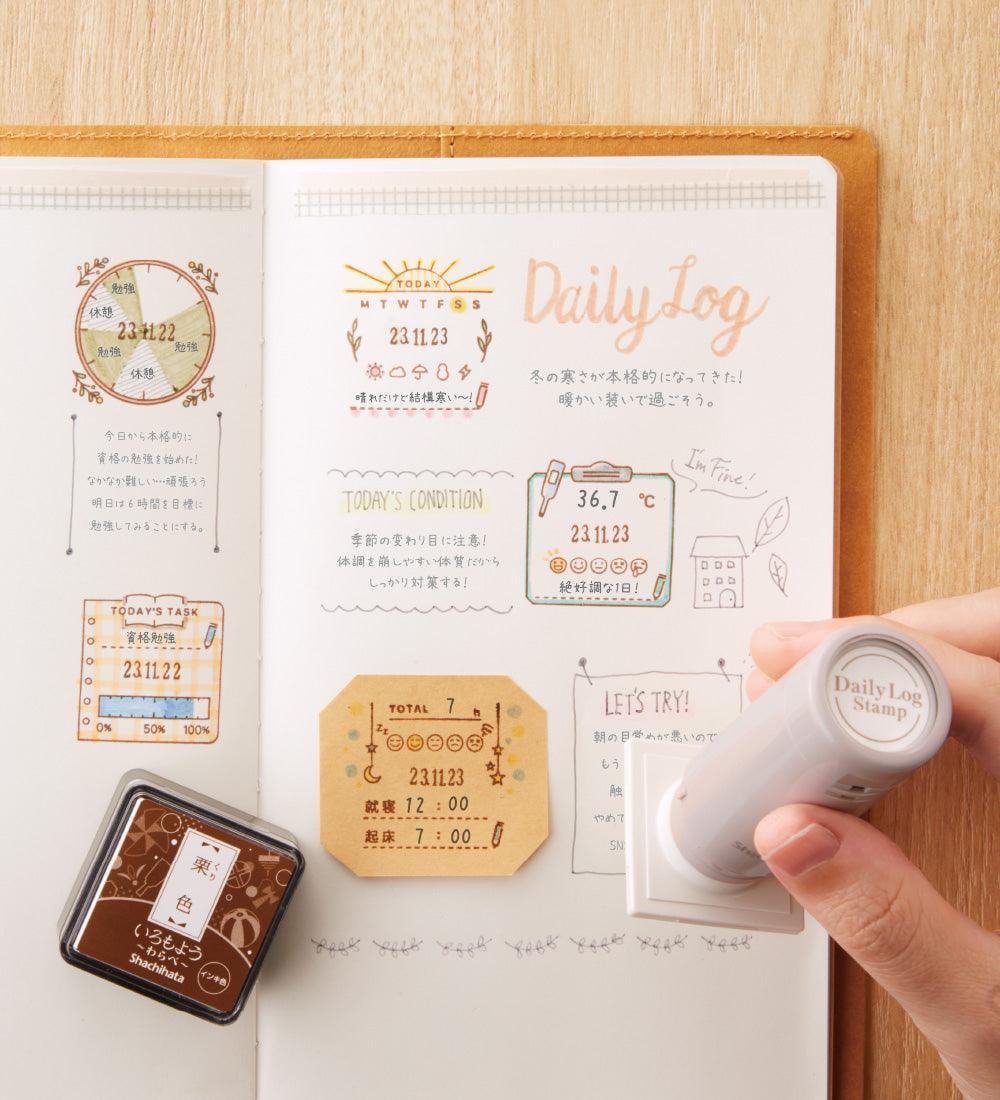 勉強
休憩
23.11.22
勉強
勉強
休憩
今日から本格的に
資格の勉強を始めた!
なかなか難しい…頑張ろう
明日は6時間を目標に
勉強してみることにする。
TODAY'S TASK
資格勉強
23.11.22
0% 50% 100%
栗色
くり
いろもよう
~わらべ~
Shachihata
インキ色
TODAY
M T W T F S S
23.11.23
晴れだけど結構寒い~!
Daily Log
冬の寒さが本格的になってきた!
暖かい装いで過ごそう。
TODAY'S CONDITION
季節の変わり目に注意!
体調を崩しやすい体質だから
しっかり対策する!
36.7 ℃
23.11.23
絶好調な1日!
I'm Fine!
TOTAL 7 h
zz
23.11.23
就寝 12 : 00
起床 7 : 00
LET'S TRY!
朝の目覚めが悪いので
もう
触
やめて
SN
Daily Log
Stamp